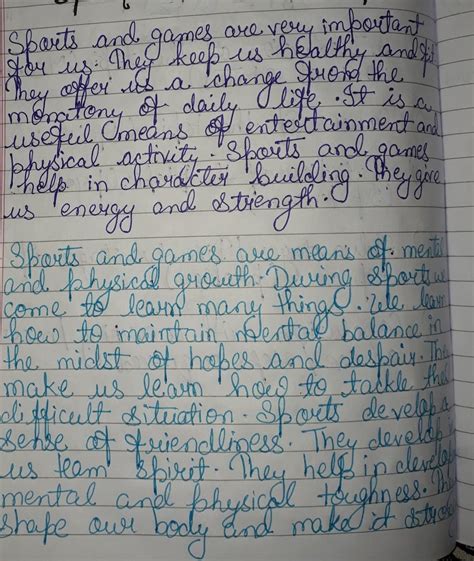 Sports and games are very important
for us. They keep us healthy and fit.
They offer us a change from the
monotony of daily life. It is a
useful means of entertainment and
physical activity. Sports and games
help in character building. They give
us energy and strength.
Sports and games are means of mental
and physical growth. During sports we
come to learn many things. We learn
how to maintain mental balance in
the midst of hopes and despair. The
make us learn how to tackle the
difficult situation. Sports develop a
sense of friendliness. They develop
us team spirit. They help in develop
mental and physical toughness. The
shape our body and make it